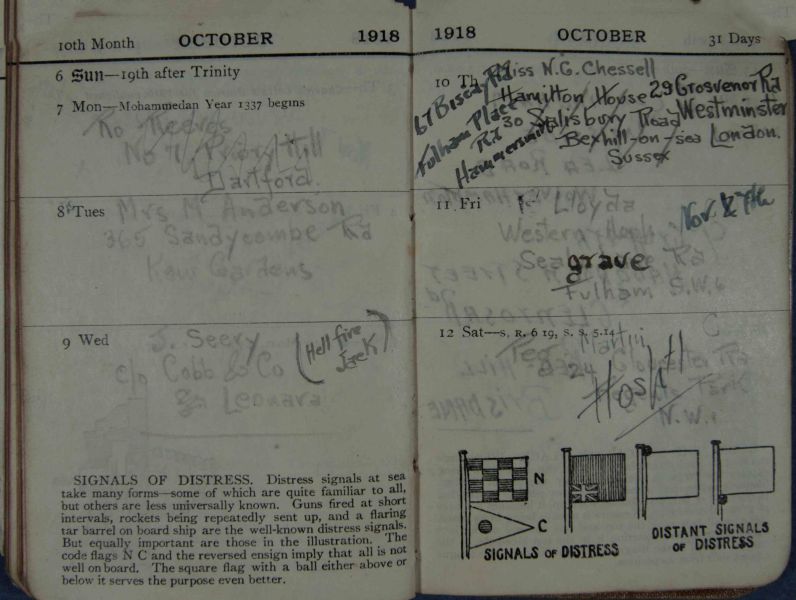 10th Month OCTOBER 1918
6 Sun—19th after Trinity
7 Mon—Mohammedan Year 1337 begins
Ro Reeves
No 71 Priory Hill
Dartford.
8 Tues Mrs M Anderson
365 Sandycombe Rd
Kew Gardens
9 Wed J. Seery
(Hell fire Jack)
c/o Cobb & Co
St Leonards
SIGNALS OF DISTRESS. Distress signals at sea
take many forms—some of which are quite familiar to all,
but others are less universally known. Guns fired at short
intervals, rockets being repeatedly sent up, and a flaring
tar barrel on board ship are the well-known distress signals.
But equally important are those in the illustration. The
code flags N C and the reversed ensign imply that all is not
well on board. The square flag with a ball either above or
below it serves the purpose even better.
1918 OCTOBER 31 Days
10 Th Miss N.G. Chessell
Hamilton House
30 Salisbury Road
Bexhill-on-sea
Sussex
29 Grosvenor Rd
Westminster
London.
67 Rd
Fulham Place
Rd
Hammersmith
11 Fri Lloyds
Nov. & 7th
Western
Sea grave Rd
Fulham S.W.6
12 Sat—S. R. 6 19, S. S. 5.14
Martin
24
Hosp
N.W.1
N
C
SIGNALS OF DISTRESS
DISTANT SIGNALS
OF DISTRESS